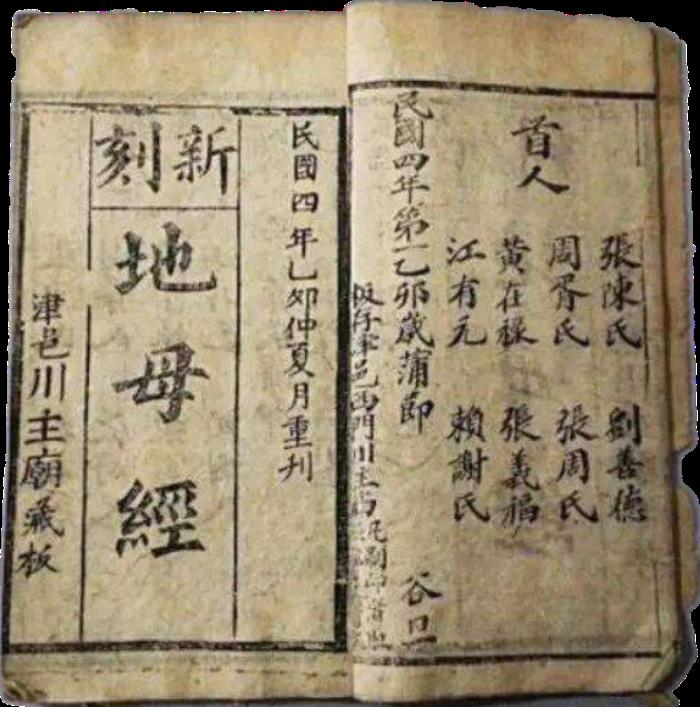 首人
張陳氏 劉善德
周胥氏 張周氏
黃在祿 張義福
江有元 賴謝氏
民國四年第一乙卯歲蒲節 谷旦
邑西門川主
民國四年乙卯仲夏月重刊
新刻
地母經
津邑川主廟藏板